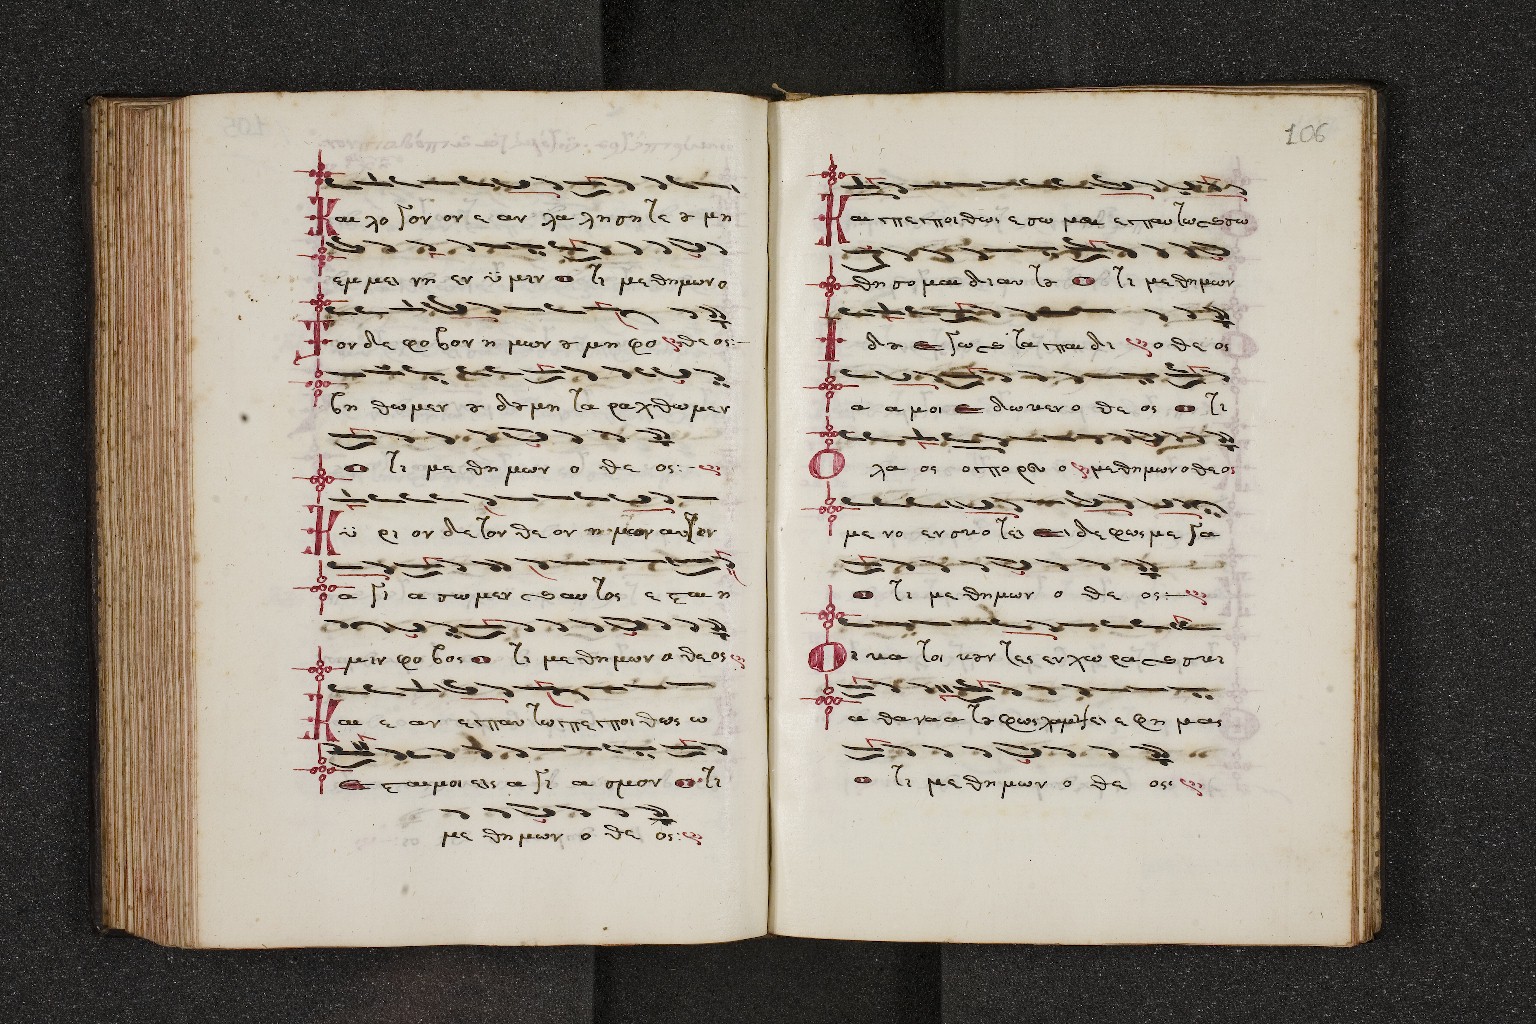 Και λο γον ον ε αν λα λη ση τε ου μη
εμ μει νη εν ϋ μιν Ο τι μεθημωνο
Τον δε φο βον η μων ου μη φο θεος:
βη θωμεν ου δου μη τα ραχθωμεν
Ο τι με θη μων ο θε ος:
Κϋ ρι ον δε τον θε ον ημων αυτον
α γι α σωμεν και αυτος ε σται η
μιν φοβος Ο τι με θη μων ο θεος
Και ε αν επ αυ τω πεποι θως ω
Ε σται μοι εις α γι α σμον Ο τι
με θη μων ο θε ος:
106
Και πεποιθως ε σο μαι επ αυ τω και σω
θη σο μαι δι αυ του Ο τι με θη μων
Ι δου Ε γω και τα παι δι ο θε ος
α α μοι Ε δωκεν ο θε ος Ο τι
Ο λα ος ο πο ρευ ο με θη μων ο θε ος
με νο εν σκο τει Ει δε φως με γα
Ο τι με θη μων ο θε ος
Οι κα τοι κουν τες εν χω ρα και σκι
α θα να α του φως λαμψει ε φη μας
Ο τι με θη μων ο θε ος